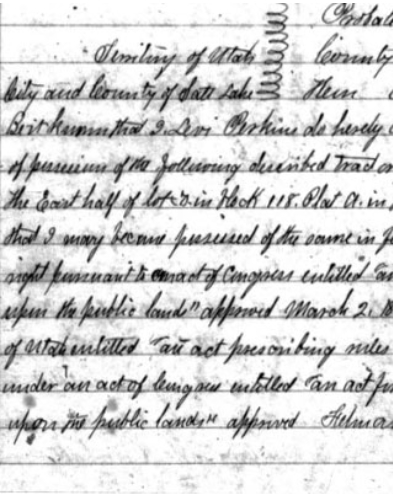 Probate
Territory of Utah County
City and County of Salt Lake
Be it known that I, Levi Perkins do hereby
of possession of the following described tract or
the East half of lot in block 118. Plat A. in
that I may become possessed of the same in
right pursuant to an act of Congress entitled "an
upon the public lands" approved March 2. 18
of Utah entitled "an act prescribing rules
under "an act of Congress entitled "an act for
upon the public lands" approved